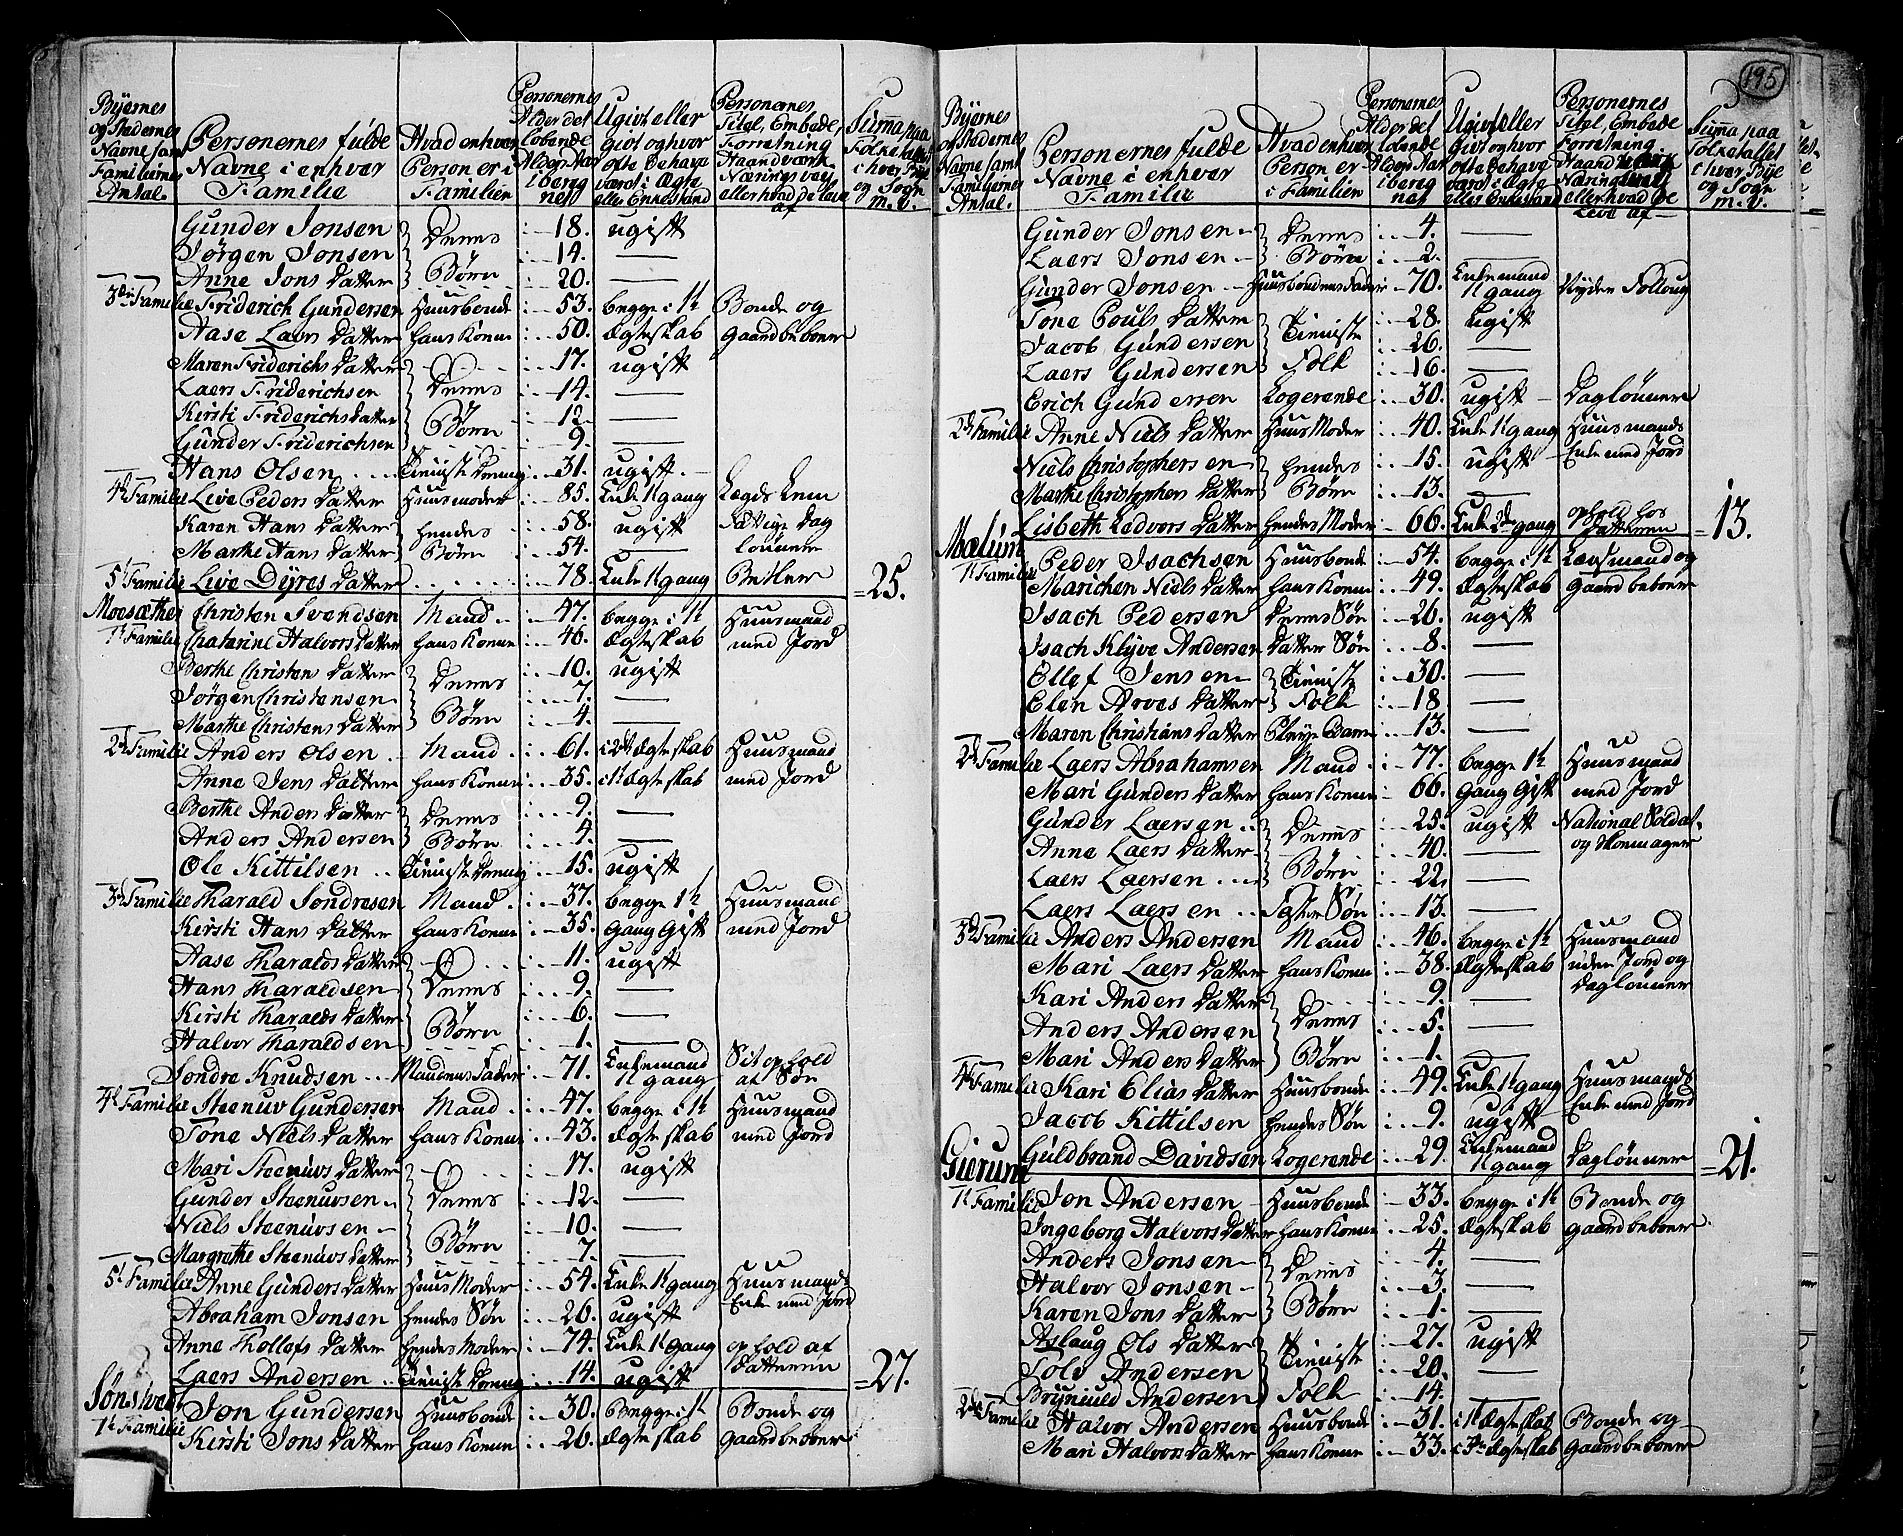 195
Byernes og Stedernes Navne samt Familiernes Antal.
Personernes fulde Navne i enhver Familie
Hvad enhver Person er i Familien
Personernes Alder det løbende Alders Aar i beregnet
Ugivt eller givt og hvor ofte de have været i Ægte eller Enkestand
Personernes Titel, Embede, Forretning Haandværk Næringsvey eller hvad de leve af
Summa paa Folketallet i hver Bye og Sogn m.v.
Gunder Jonsen } Deres 18. ugift
Jørgen Jonsen } 14. —
Anne Jons Datter } Børn 20. —
3die Familie Friderich Gundersen Huusbonde 53. begge i 1t Bonde og
Aase Laers Datter hans Konne 50. Ægteskab gaardbeboer
Maren Friderichs Datter } 17. ugift
Laers Friderichsen } Deres 14. —
Kirsti Friderichs Datter } Børn 12. —
Gunder Friderichsen } 9. —
Hans Olsen Tieniste Dreng 31. ugift
4de Familie Live Peders Datter Huusmoder 85. Enke 1t gang Lægds Lem
Karen Hans Datter hendes 58. ugift Fattige Dag
Marthe Hans Datter Børn 54. — lønner
5te Familie Live Dyres Datter 78. Enke 1t gang Betler =25.
Moesæther Christen Svendsen Mand 47. begge i 1t Huusmand
1t Familie Chatarine Halvors Datter hans Konne 46. Ægteskab med Jord
Berthe Christens Datter } 10. ugift
Jørgen Christensen } Deres 7. —
Marthe Christens Datter } Børn 4. —
2d Familie Anders Olsen Mand 61. i 2d Ægteskab Huusmand
Anne Jens Datter hans Konne 35. i 1t Ægteskab med Jord
Berthe Anders Datter } Deres 9. —
Anders Andersen } Børn 4. —
Ole Kittilsen Tieniste Dreng 15. ugift
3d Familie Tharald Sondresen Mand 37. begge 1t Huusmand
Kirsti Hans Datter hans Konne 35. Gang Gift med Jord
Aase Tharalds Datter } 11. ugift
Hans Tharaldsen } Deres 9. —
Kirsti Tharalds Datter } Børn 6. —
Halvor Tharaldsen } 1. —
Sondre Knudsen Mandens Fader 71. Enkemand 1t gang Sit ophold af Søn
4de Familie Steenuv Gundersen Mand 47. begge i 1t Huusmand
Tone Niels Datter hans Konne 43. Ægteskab med Jord
Mari Steenuvs Datter } 17. ugift
Gunder Steenuvsen } Deres 12. —
Niels Steenuvsen } 10. —
Margrethe Steenuvs Datter } Børn 7. —
5t Familie Anne Gunders Datter Huus Moder 54. Enke 1t gang Huusmands
Abraham Jonsen hendes Søn 26. ugift Enke med Jord
Anne Thollefs Datter hendes Moder 74. Enke 1t Gang ophold af Datteren
Laers Andersen Tieniste Dreng 14. ugift =27.
1t Familie Jon Gundersen Huusbonde 30. Begge i 1t Bonde og
Kirsti Jons Datter hans Konne 26. Ægteskab gaardbeboer
Byernes og Stedernes Navne samt Familiernes Antal.
Personernes fulde Navne i enhver Familie
Hvad enhver Person er i Familien
Personernes Alder det løbende Alders Aar i beregnet
Ugivt eller givt og hvor ofte de have været i Ægte eller Enkestand
Personernes Titel, Embede Forretning Haandværk Næringsvey eller hvad de leve af
Summa paa Folketallet i hver Bye og Sogn m.v.
Gunder Jonsen } Deres 4. —
Laers Jonsen } Børn 2. —
Gunder Jonsen Huusbondens Fader 70. Enkemand 1t gang Nyder Folloug
Tone Pouls Datter } Tieniste 28. ugift
Jacob Gundersen } 26. —
Laers Gundersen } Folk 16. —
Erich Gundersen Logerende 30. ugift Daglønnere
2d Familie Anne Niels Datter Huus Moder 40. Enke 1t gang Huusmands
Niels Christophersen hendes 15. ugift Enke med Jord
Marthe Christophers Datter Børn 13. —
Lisbeth Ledvors Datter hendes Moder 66. Enke 2de gang ophold hos Datteren =13.
Mælum Peder Isachsen Huusbonde 54. begge i 1t Lensmand og
1t Familie Marichen Niels Datter hans Konne 49. Ægteskab gaardbeboer
Isach Pedersen Deres Søn 26. ugift
Isach Klyve Andersen Datter Søn 8. —
Ellef Jensen } Tieniste 30. —
Elen Arves Datter } Folk 18 —
Maren Christians Datter Pleye Barn 13. —
2d Familie Laers Abrahamsen Mand 77. begge 1t Huusmand
Mari Gunders Datter hans Konne 66. Gang Gift med Jord
Gunder Laersen } Deres 25. ugift National Soldat
Anne Laers Datter } 40. — og Skomager
Laers Laersen } Børn 22. —
Laers Laersen Søn 13. —
3d Familie Anders Andersen Mand 46. begge i 1t Huusmand
Mari Laers Datter hans Konne 38. Ægteskab uden Jord og
Kari Anders Datter } 9. — Daglønner
Anders Andersen } Deres 5. —
Mari Anders Datter } Børn 1. —
4de Familie Kari Elias Datter Huusbonde 49. Enke 1t gang Huusmands
Jacob Kittilsen hendes Søn 9. ugift Enke med Jord
Guldbrand Davidsen Logerende 29. Enkemand 1t gang Daglønner =21.
Gierum
1t Familie Jon Andersen Huusbonde 33. begge i 1t Bonde og
Ingeborg Halvors Datter hans Konne 25. Ægteskab gaardbeboer
Anders Jonsen } 4. —
Halvor Jonsen } Deres 3. —
Karen Jons Datter } Børn 1. —
Aslaug Ols Datter } 27. ugift
Solv Andersen } Tieniste 20. —
Bryniuld Andersen } Folk 14. —
2de Familie Halvor Andersen Huusbonde 31. i 1t Ægteskab Bonde og
Mari Halvors Datter hans Konne 33. i 3de Ægteskab gaardbeboer